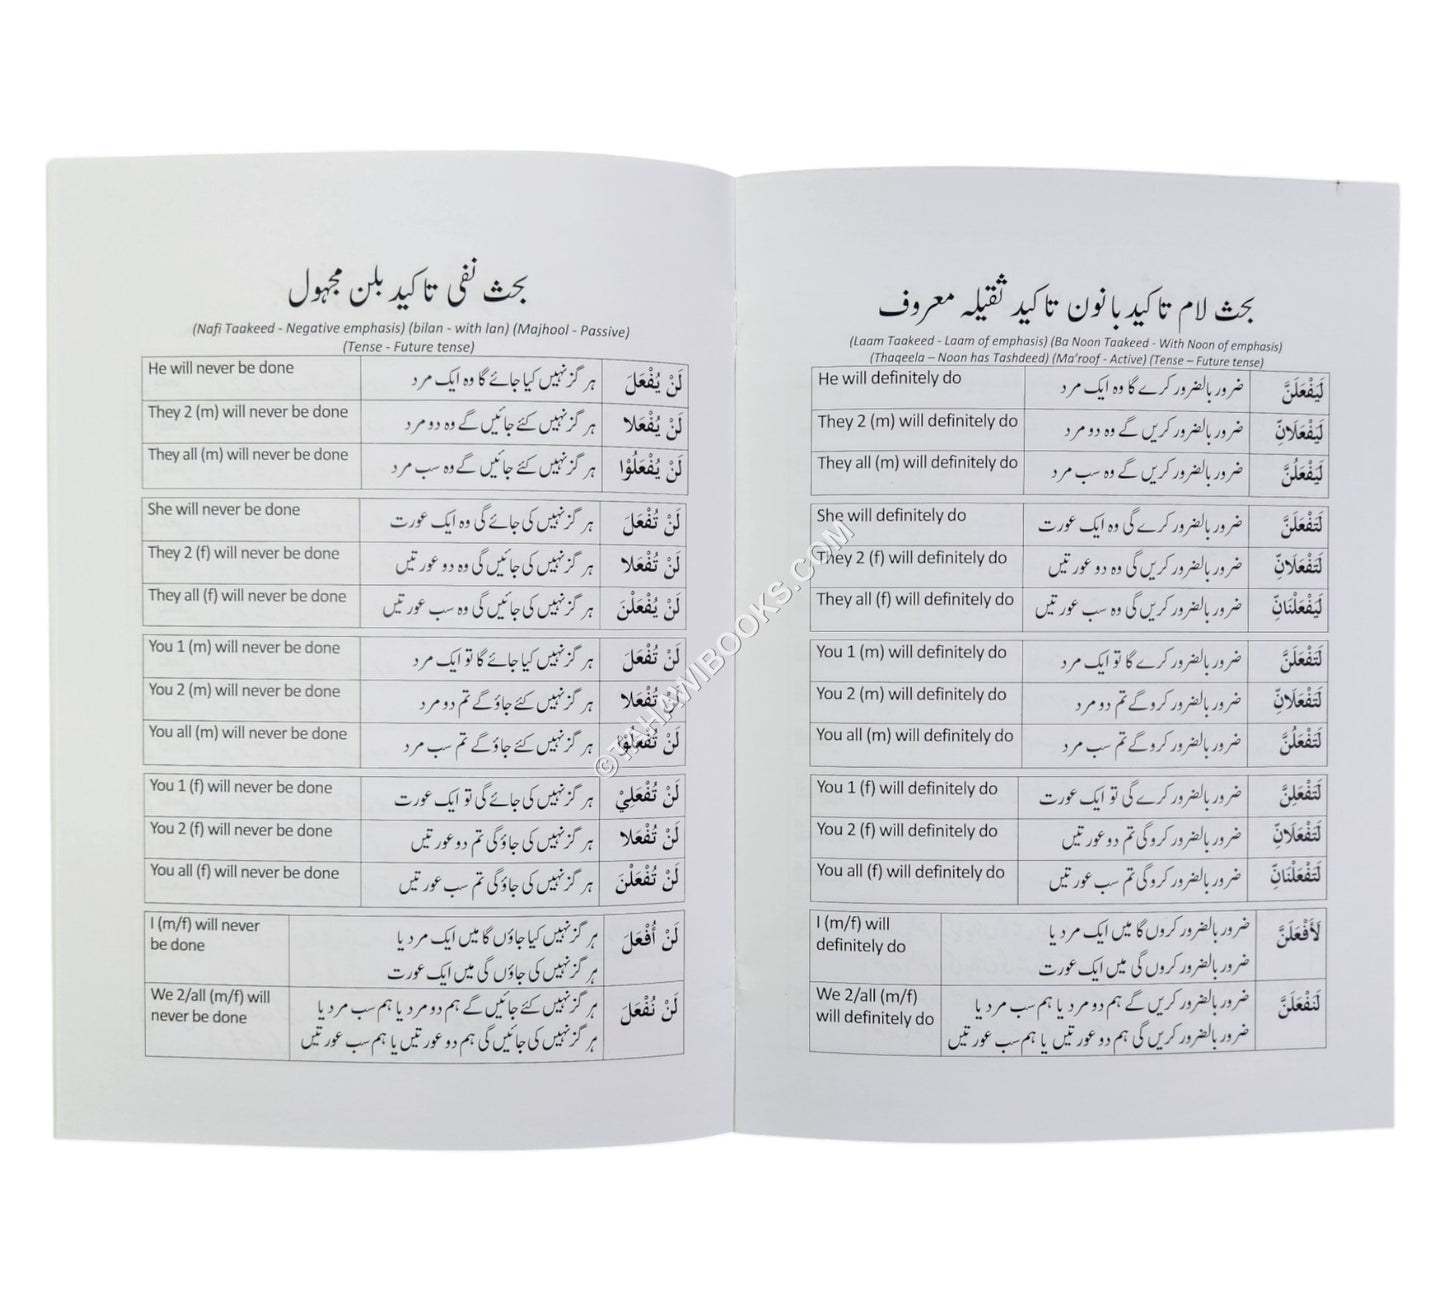 بحث نفی تاکید بلن مجہول
(Nafi Taakeed - Negative emphasis) (bilan - with lan) (Majhool - Passive)
(Tense - Future tense)
He will never be done ہر گز نہیں کیا جائے گا وہ ایک مرد لَنْ يُفْعَلَ
They 2 (m) will never be done ہر گز نہیں کئے جائیں گے وہ دو مرد لَنْ يُفْعَلا
They all (m) will never be done ہر گز نہیں کئے جائیں گے وہ سب مرد لَنْ يُفْعَلُوْا
She will never be done ہر گز نہیں کی جائے گی وہ ایک عورت لَنْ تُفْعَلَ
They 2 (f) will never be done ہر گز نہیں کی جائیں گی وہ دو عورتیں لَنْ تُفْعَلا
They all (f) will never be done ہر گز نہیں کی جائیں گی وہ سب عورتیں لَنْ يُفْعَلْنَ
You 1 (m) will never be done ہر گز نہیں کیا جائے گا تو ایک مرد لَنْ تُفْعَلَ
You 2 (m) will never be done ہر گز نہیں کئے جاؤ گے تم دو مرد لَنْ تُفْعَلا
You all (m) will never be done ہر گز نہیں کئے جاؤ گے تم سب مرد لَنْ تُفْعَلُوْا
You 1 (f) will never be done ہر گز نہیں کی جائے گی تو ایک عورت لَنْ تُفْعَلِيْ
You 2 (f) will never be done ہر گز نہیں کی جاؤ گی تم دو عورتیں لَنْ تُفْعَلا
You all (f) will never be done ہر گز نہیں کی جاؤ گی تم سب عورتیں لَنْ تُفْعَلْنَ
I (m/f) will never ہر گز نہیں کیا جاؤں گا میں ایک مرد یا لَنْ أُفْعَلَ
be done ہر گز نہیں کی جاؤں گی میں ایک عورت
We 2/all (m/f) will ہر گز نہیں کئے جائیں گے ہم دو مرد یا ہم سب مرد یا لَنْ نُفْعَلَ
never be done ہر گز نہیں کی جائیں گی ہم دو عورتیں یا ہم سب عورتیں
بحث لام تاکید با نون تاکید ثقیلہ معروف
(Laam Taakeed - Laam of emphasis) (Ba Noon Taakeed - With Noon of emphasis)
(Thaqeela – Noon has Tashdeed) (Ma'roof - Active) (Tense – Future tense)
He will definitely do ضرور بالضرور کرے گا وہ ایک مرد لَيَفْعَلَنَّ
They 2 (m) will definitely do ضرور بالضرور کریں گے وہ دو مرد لَيَفْعَلَانِّ
They all (m) will definitely do ضرور بالضرور کریں گے وہ سب مرد لَيَفْعَلُنَّ
She will definitely do ضرور بالضرور کرے گی وہ ایک عورت لَتَفْعَلَنَّ
They 2 (f) will definitely do ضرور بالضرور کریں گی وہ دو عورتیں لَتَفْعَلَانِّ
They all (f) will definitely do ضرور بالضرور کریں گی وہ سب عورتیں لَيَفْعَلْنَانِّ
You 1 (m) will definitely do ضرور بالضرور کرے گا تو ایک مرد لَتَفْعَلَنَّ
You 2 (m) will definitely do ضرور بالضرور کرو گے تم دو مرد لَتَفْعَلَانِّ
You all (m) will definitely do ضرور بالضرور کرو گے تم سب مرد لَتَفْعَلُنَّ
You 1 (f) will definitely do ضرور بالضرور کرے گی تو ایک عورت لَتَفْعَلِنَّ
You 2 (f) will definitely do ضرور بالضرور کرو گی تم دو عورتیں لَتَفْعَلَانِّ
You all (f) will definitely do ضرور بالضرور کرو گی تم سب عورتیں لَتَفْعَلْنَانِّ
I (m/f) will ضرور بالضرور کروں گا میں ایک مرد یا لَأَفْعَلَنَّ
definitely do ضرور بالضرور کروں گی میں ایک عورت
We 2/all (m/f) ضرور بالضرور کریں گے ہم دو مرد یا ہم سب مرد یا لَنَفْعَلَنَّ
will definitely do ضرور بالضرور کریں گی ہم دو عورتیں یا ہم سب عورتیں
© TAHAWIBOOKS.COM